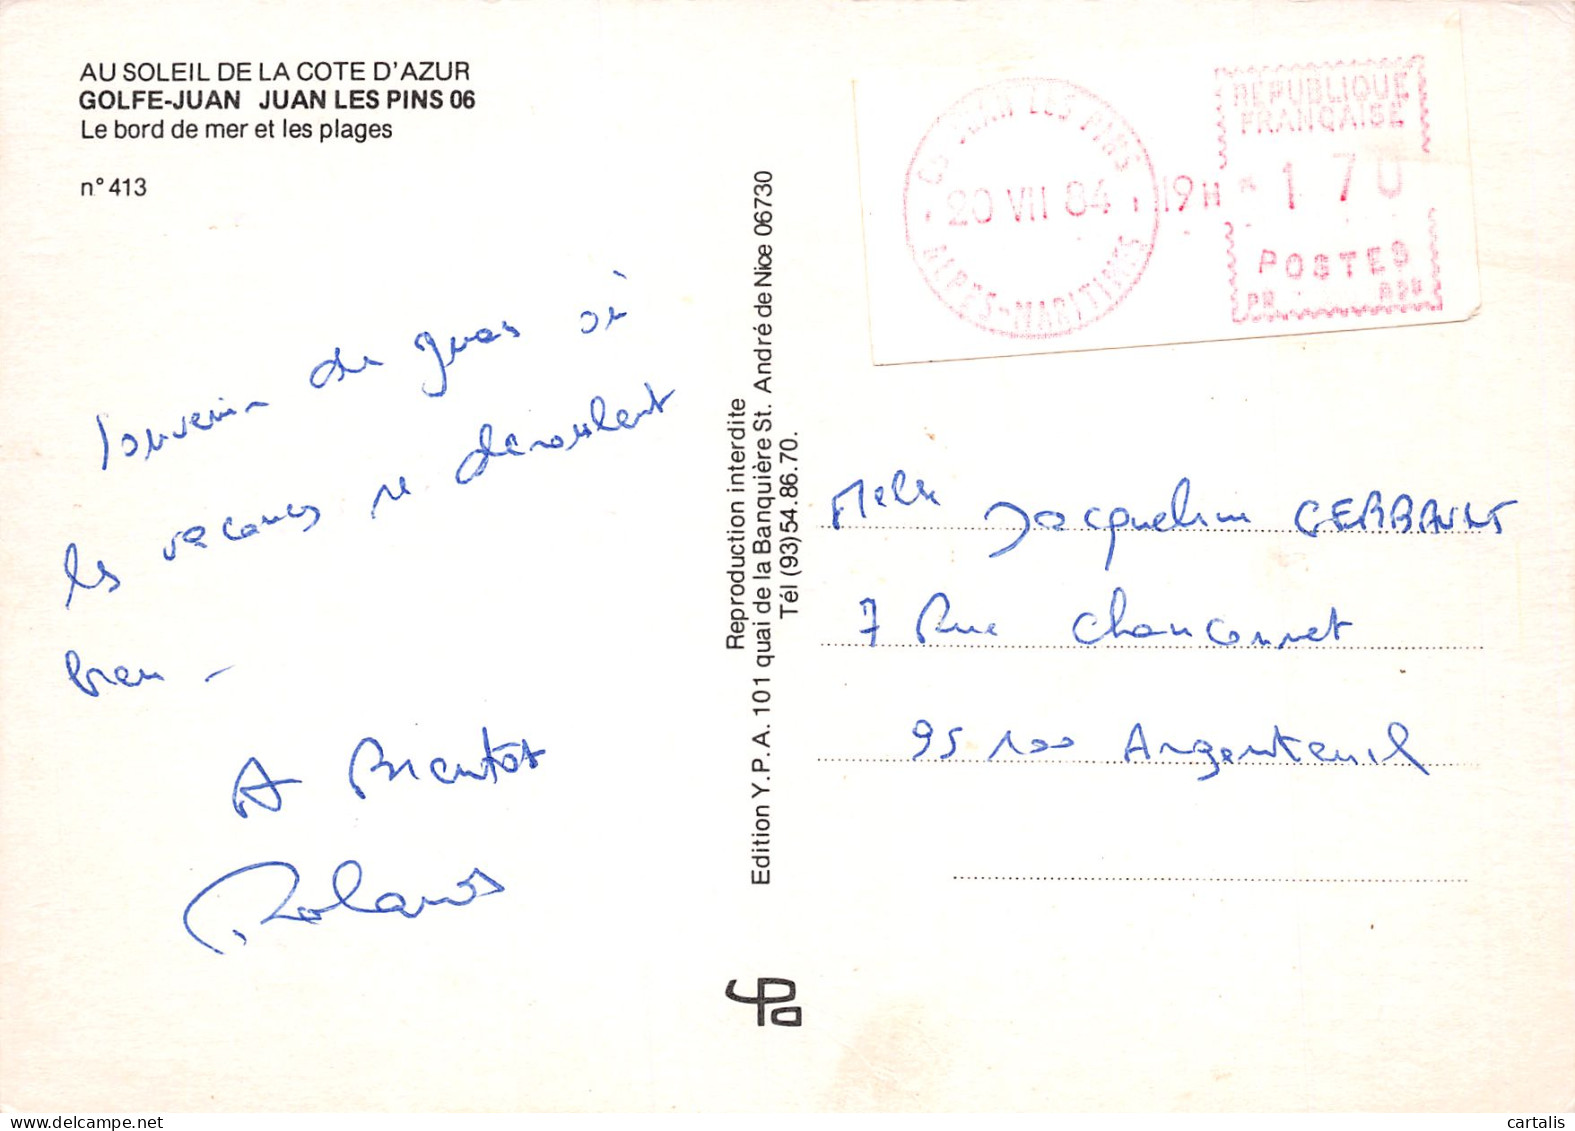 AU SOLEIL DE LA COTE D'AZUR
GOLFE-JUAN JUAN LES PINS 06
Le bord de mer et les plages
n° 413
Souvenir de Juan où
les vacances se déroulent
bien -
A Bientot
Roland
Reproduction interdite
Edition Y.P.A. 101 quai de la Banquière St. André de Nice 06730
Tél (93) 54.86.70.
JUAN LES PINS
20 VII 84 19H
ALPES-MARITIMES
REPUBLIQUE
FRANÇAISE
170
POSTES
Melle Jacqueline GERBAULT
7 Rue Chanconnet
95100 Argenteuil
cartalis
delcampe.net